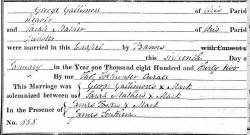 George Gallimore of this Parish
Weaver
and Sarah Mather of this Parish
Spinster
were married in this Chapel by Banns with Consent of
this sixteenth Day of
January in the Year One thousand eight Hundred and Thirty two
By me Curate
This Marriage was George Gallimore's x Mark
solemnized between us Sarah Mather's x Mark
In the Presence of James x Mark
James
No. 555